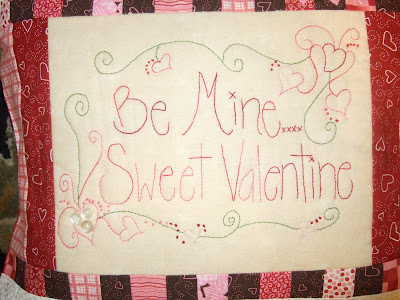 Be Mine...xxxx
Sweet Valentine